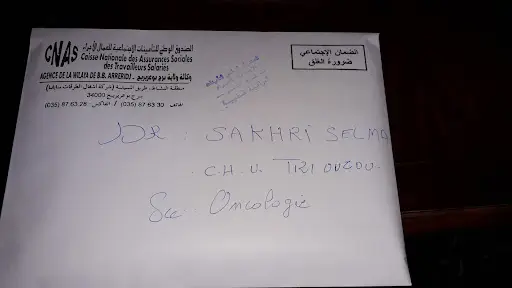 الصندوق الوطني للتأمينات الإجتماعية للعمال الأجراء
CNAS
Caisse Nationale des Assurances Sociales
des Travailleurs Salariés
وكالة ولاية برج بوعريريج
AGENCE DE LA WILAYA DE B.B. ARRERIDJ
برج بوعريريج 34000
الهاتف: 30 63 87 (035) / الفاكس: 28 63 87 (035)
الضمان الإجتماعي
ضرورة الغلق
DR : SAKHRI SELMA
C.H.U. TIZI OUZOU.
Sce Oncologie